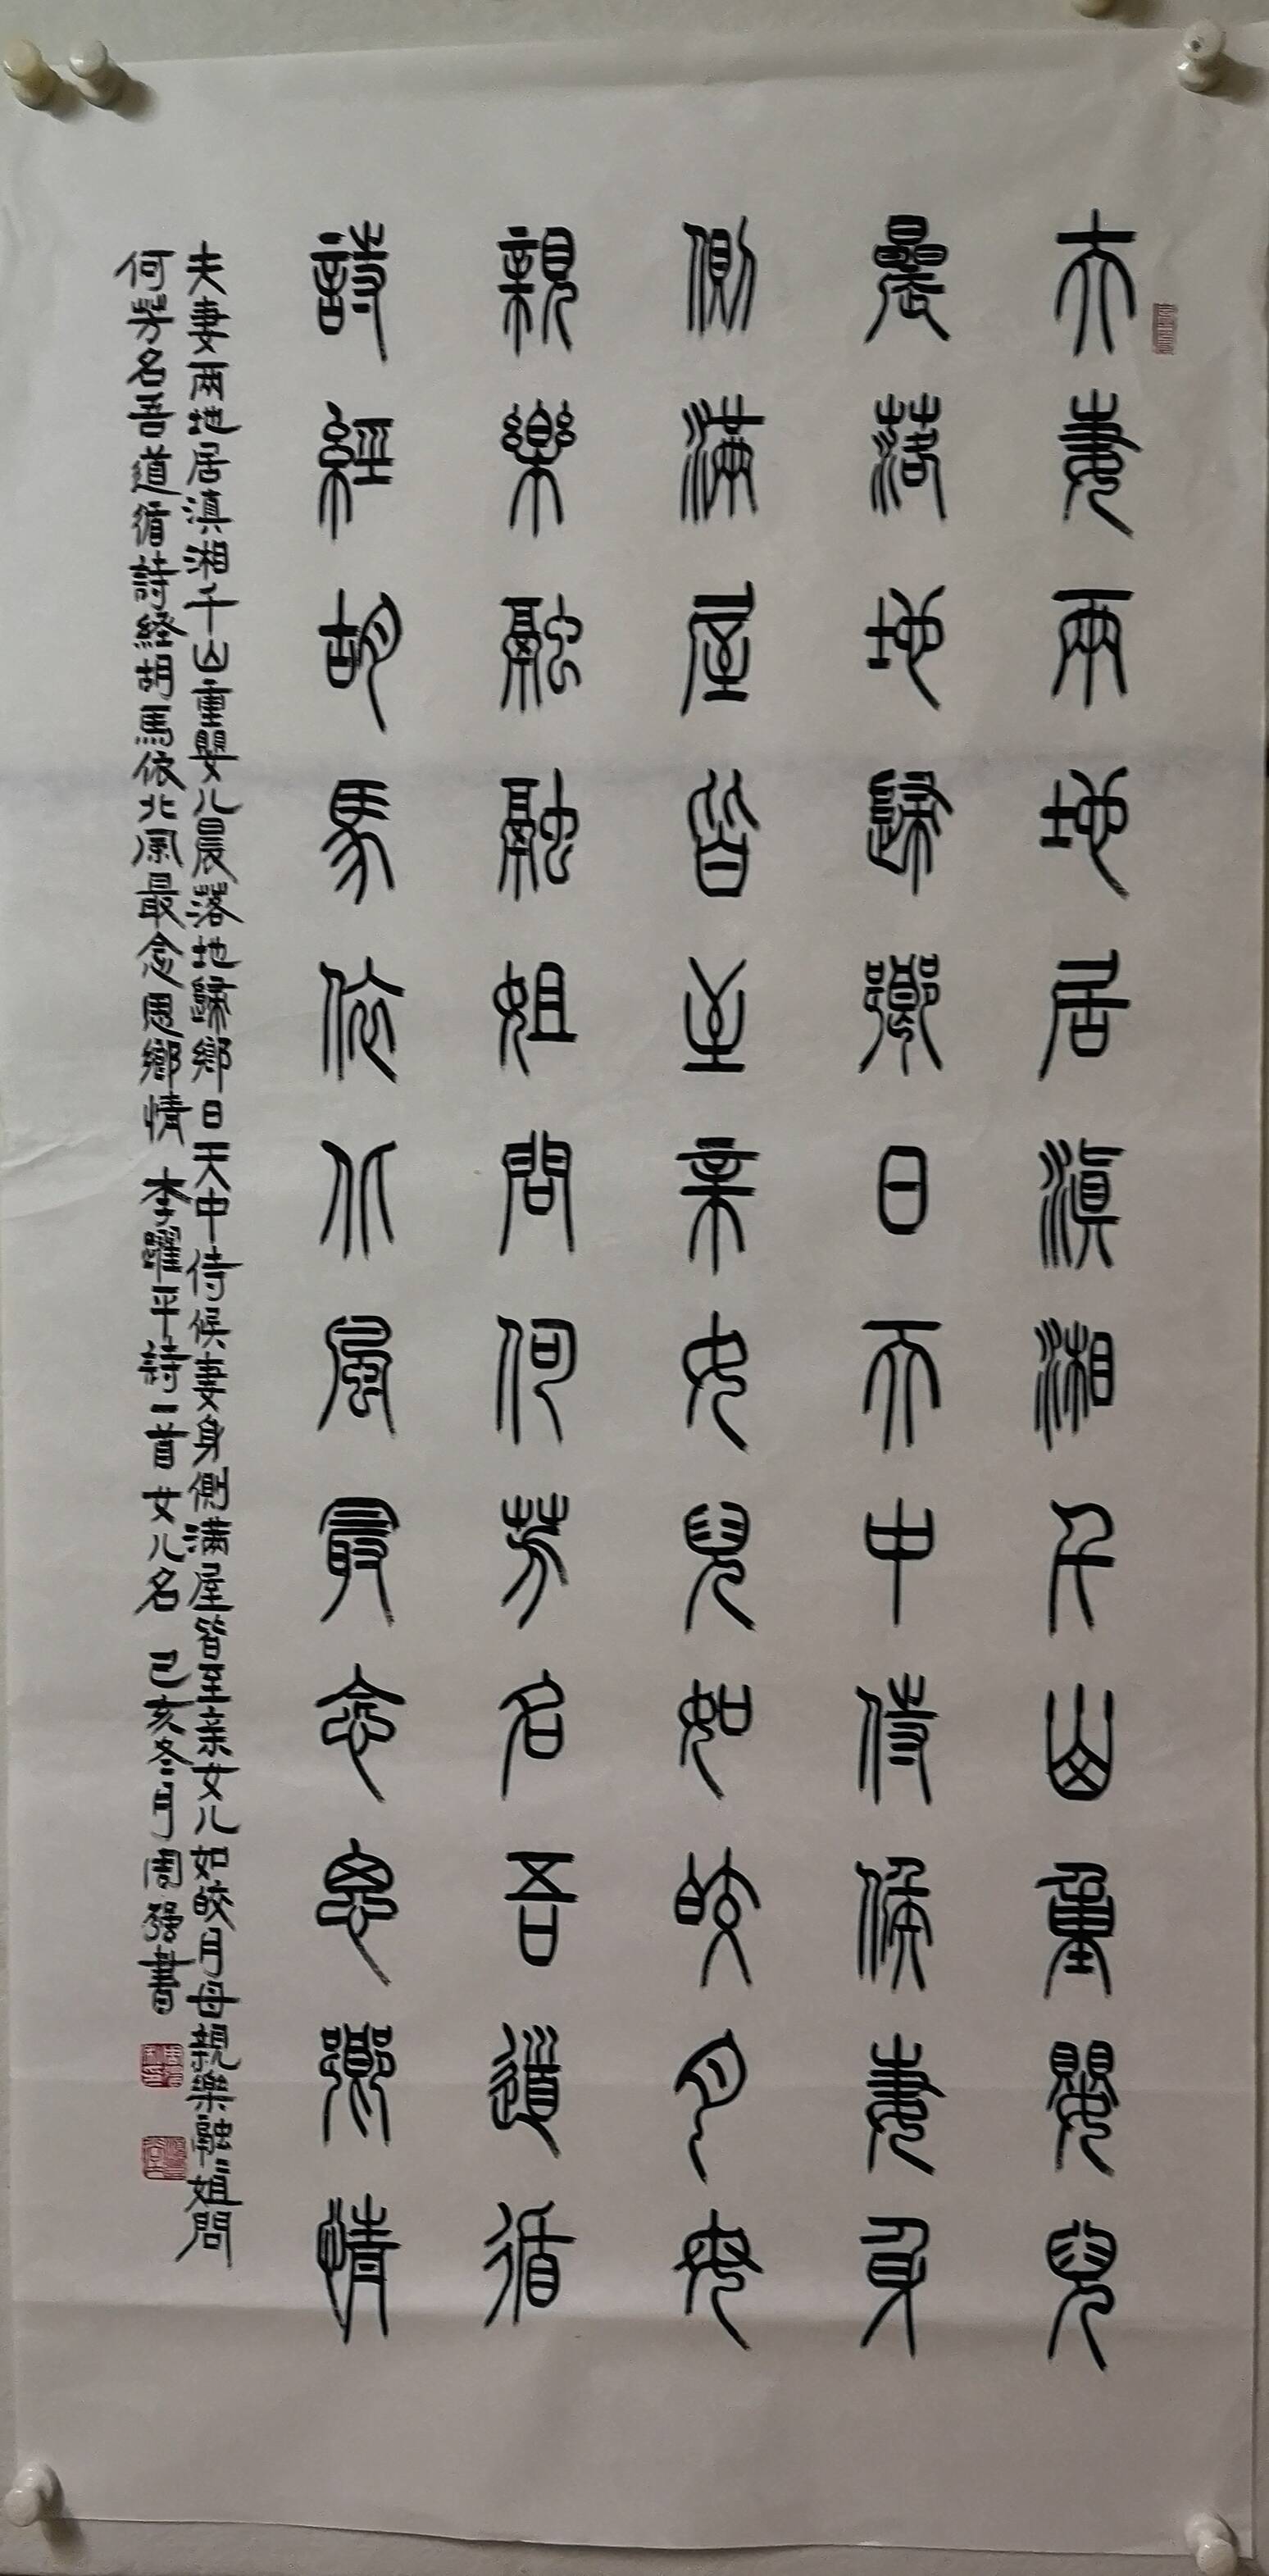 夫妻兩地居滇湘千山重嬰兒
晨落地歸鄉日天中侍候妻身
側滿屋皆至亲女兒如皎月母
親樂融融姐問何芳名吾道循
詩經胡馬依北風最念思鄉情
夫妻兩地居滇湘千山重嬰儿晨落地歸鄉日天中侍候妻身側满屋皆至亲女儿如皎月母親樂融〻姐問
何芳名吾道循詩經胡馬依北風最念思鄉情 李躍平詩一首女儿名 己亥冬月周强書